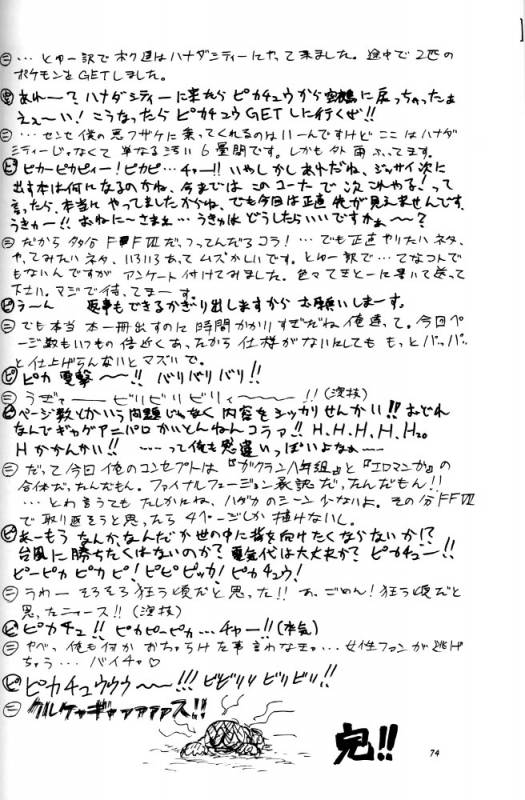 ㊁ … とゆー訳でボク達はハナダシティーにやって来ました。途中で2匹の
ポケモンをGETしました。
あれー?ハナダシティーに来たらピカチュウから に戻っちゃったよ
えぇ〜い!こうなったらピカチュウGETしに行くぜ!!
㊁ … センセ俺の悪フザケに乗ってくれるのはいーんですけどここはハナダ
シティーじゃなくて単なる汚い6畳間です。しかも外雨ふってます。
ピ ピカーピカピィー!ピカピ…チャー!!いやしかしあれだね、ジッサイ次に
出す本は何になるのかね、今まではこのコーナーで次これやる!って
言ったら、本当にやってしまたからね、でも今回は正直先が見えませんです
うきゃー!!おねにーさまぁ… うきゅはどうしたらいいですかぁ〜〜?
㊁ だから多分F●FⅦだ、つってんだろコラ!…でも正直やりたいネタ、
やってみたいネタ、いろいろあってムズかしいです。とゆー訳で…てなコトで
もないんですがアンケート付けてみました。色々てきとーに書いて送って
下さい。マジで待ってまーす。
ピ う〜ん 返事もできるかぎり出しますからお願いしまーす。
㊁ でも本当本一冊出すのに時間かかりすぎだね俺達って。今回ペー
ジ数もいつもの倍近くあったから仕様がないにしてももっとパッパッ
と仕上げらんないとマズいで。
ピ ピカ電撃〜〜!!バリバリバリ!!
㊁ うぎゃー ビリビリビリィ〜〜〜 !!(演技)
ピ ページ数とかいう問題じゃなく内容をシッカリせんかい!!おどれ
なんでギャグアニパロかいとんねんコラァ!!H.H.H.H.H₂O
Hかかんかい!! ……って俺も思違いっぱいよなぁ〜〜
㊁ だって今回俺のコンセプトは『ガクラン八年組』と『エロマンガ』の
合体だったんだもん。ファイナルフュージョン承認だったんだもん!!
…とわ言うてもたしかにね、ハダカのシーン少ないよ。その分FFⅦ
で取り返そうと思ったら4ページしか描けないし。
ピ あーもうなんかなんだか世の中に背を向けたくならないか!?
台風に勝ちたくはないのか?電気代は大丈夫か?ピカチュー!!
ピーピカピカピ!ピピピッカ!ピカチュウ!
㊁ うわーそろそろ狂う頃だと思った!!あ、ごめん!狂う頃だと
思ったニャース!!(演技)
ピ ピカチュ!!ピカピーピカ…チャー!!(本気)
㊁ やべっ俺も何かおちゃらけた事言わなきゃ…女性ファンが逃げ
ちゃう…バイチャ♡
ピ ピカチュウウウ〜〜!!!ビビリリビリビリ!!
㊁ クルケァギャァァァァス!!
完!!
74